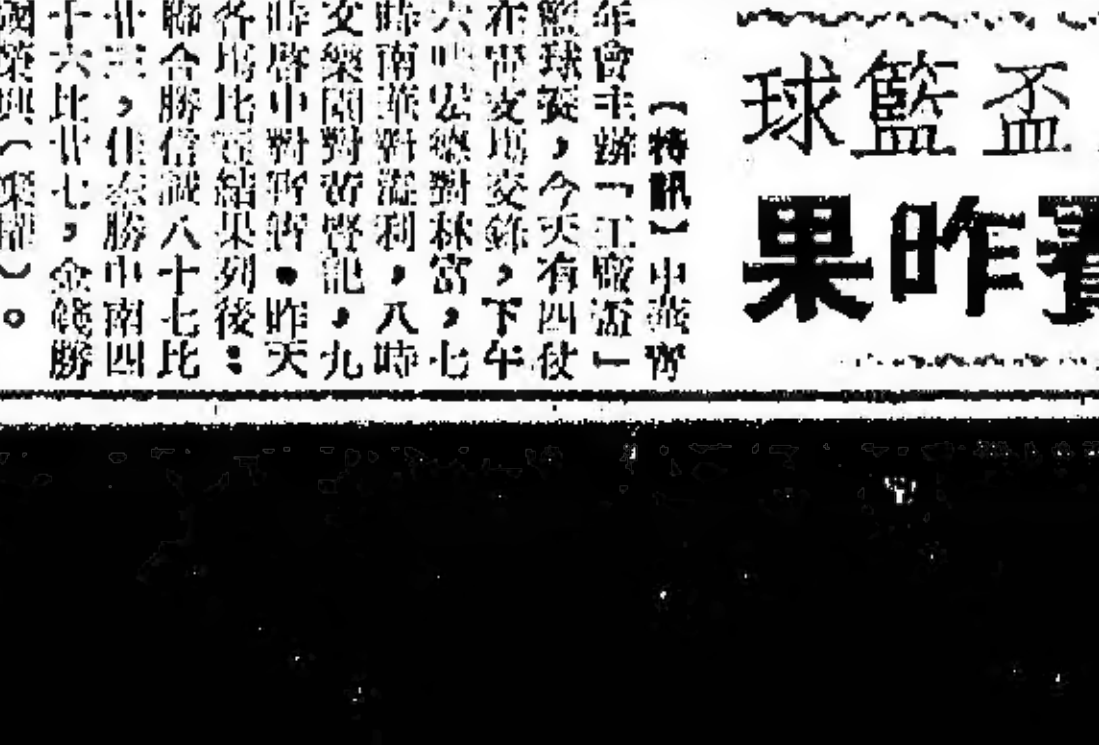 盃籃球
賽昨果
(特訊)中華青
年會主辦「工廠盃」
籃球賽,今天有四仗
在雷支場交鋒,下午
六時宏德對林富,七
時南華對海利,八時
女樂園對菁聲記,九
時啓中對
。昨天
各場比賽結果列後:
聯合勝信誠八十七比
廿三,佳泰勝中南四
十六比廿七,金錢勝
國榮興(棄權)。